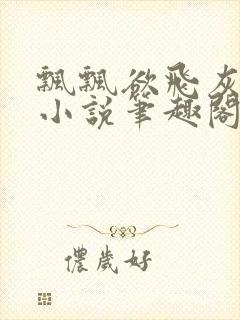 飄飄欲飛灰
小說筆趣閣
儂歲好